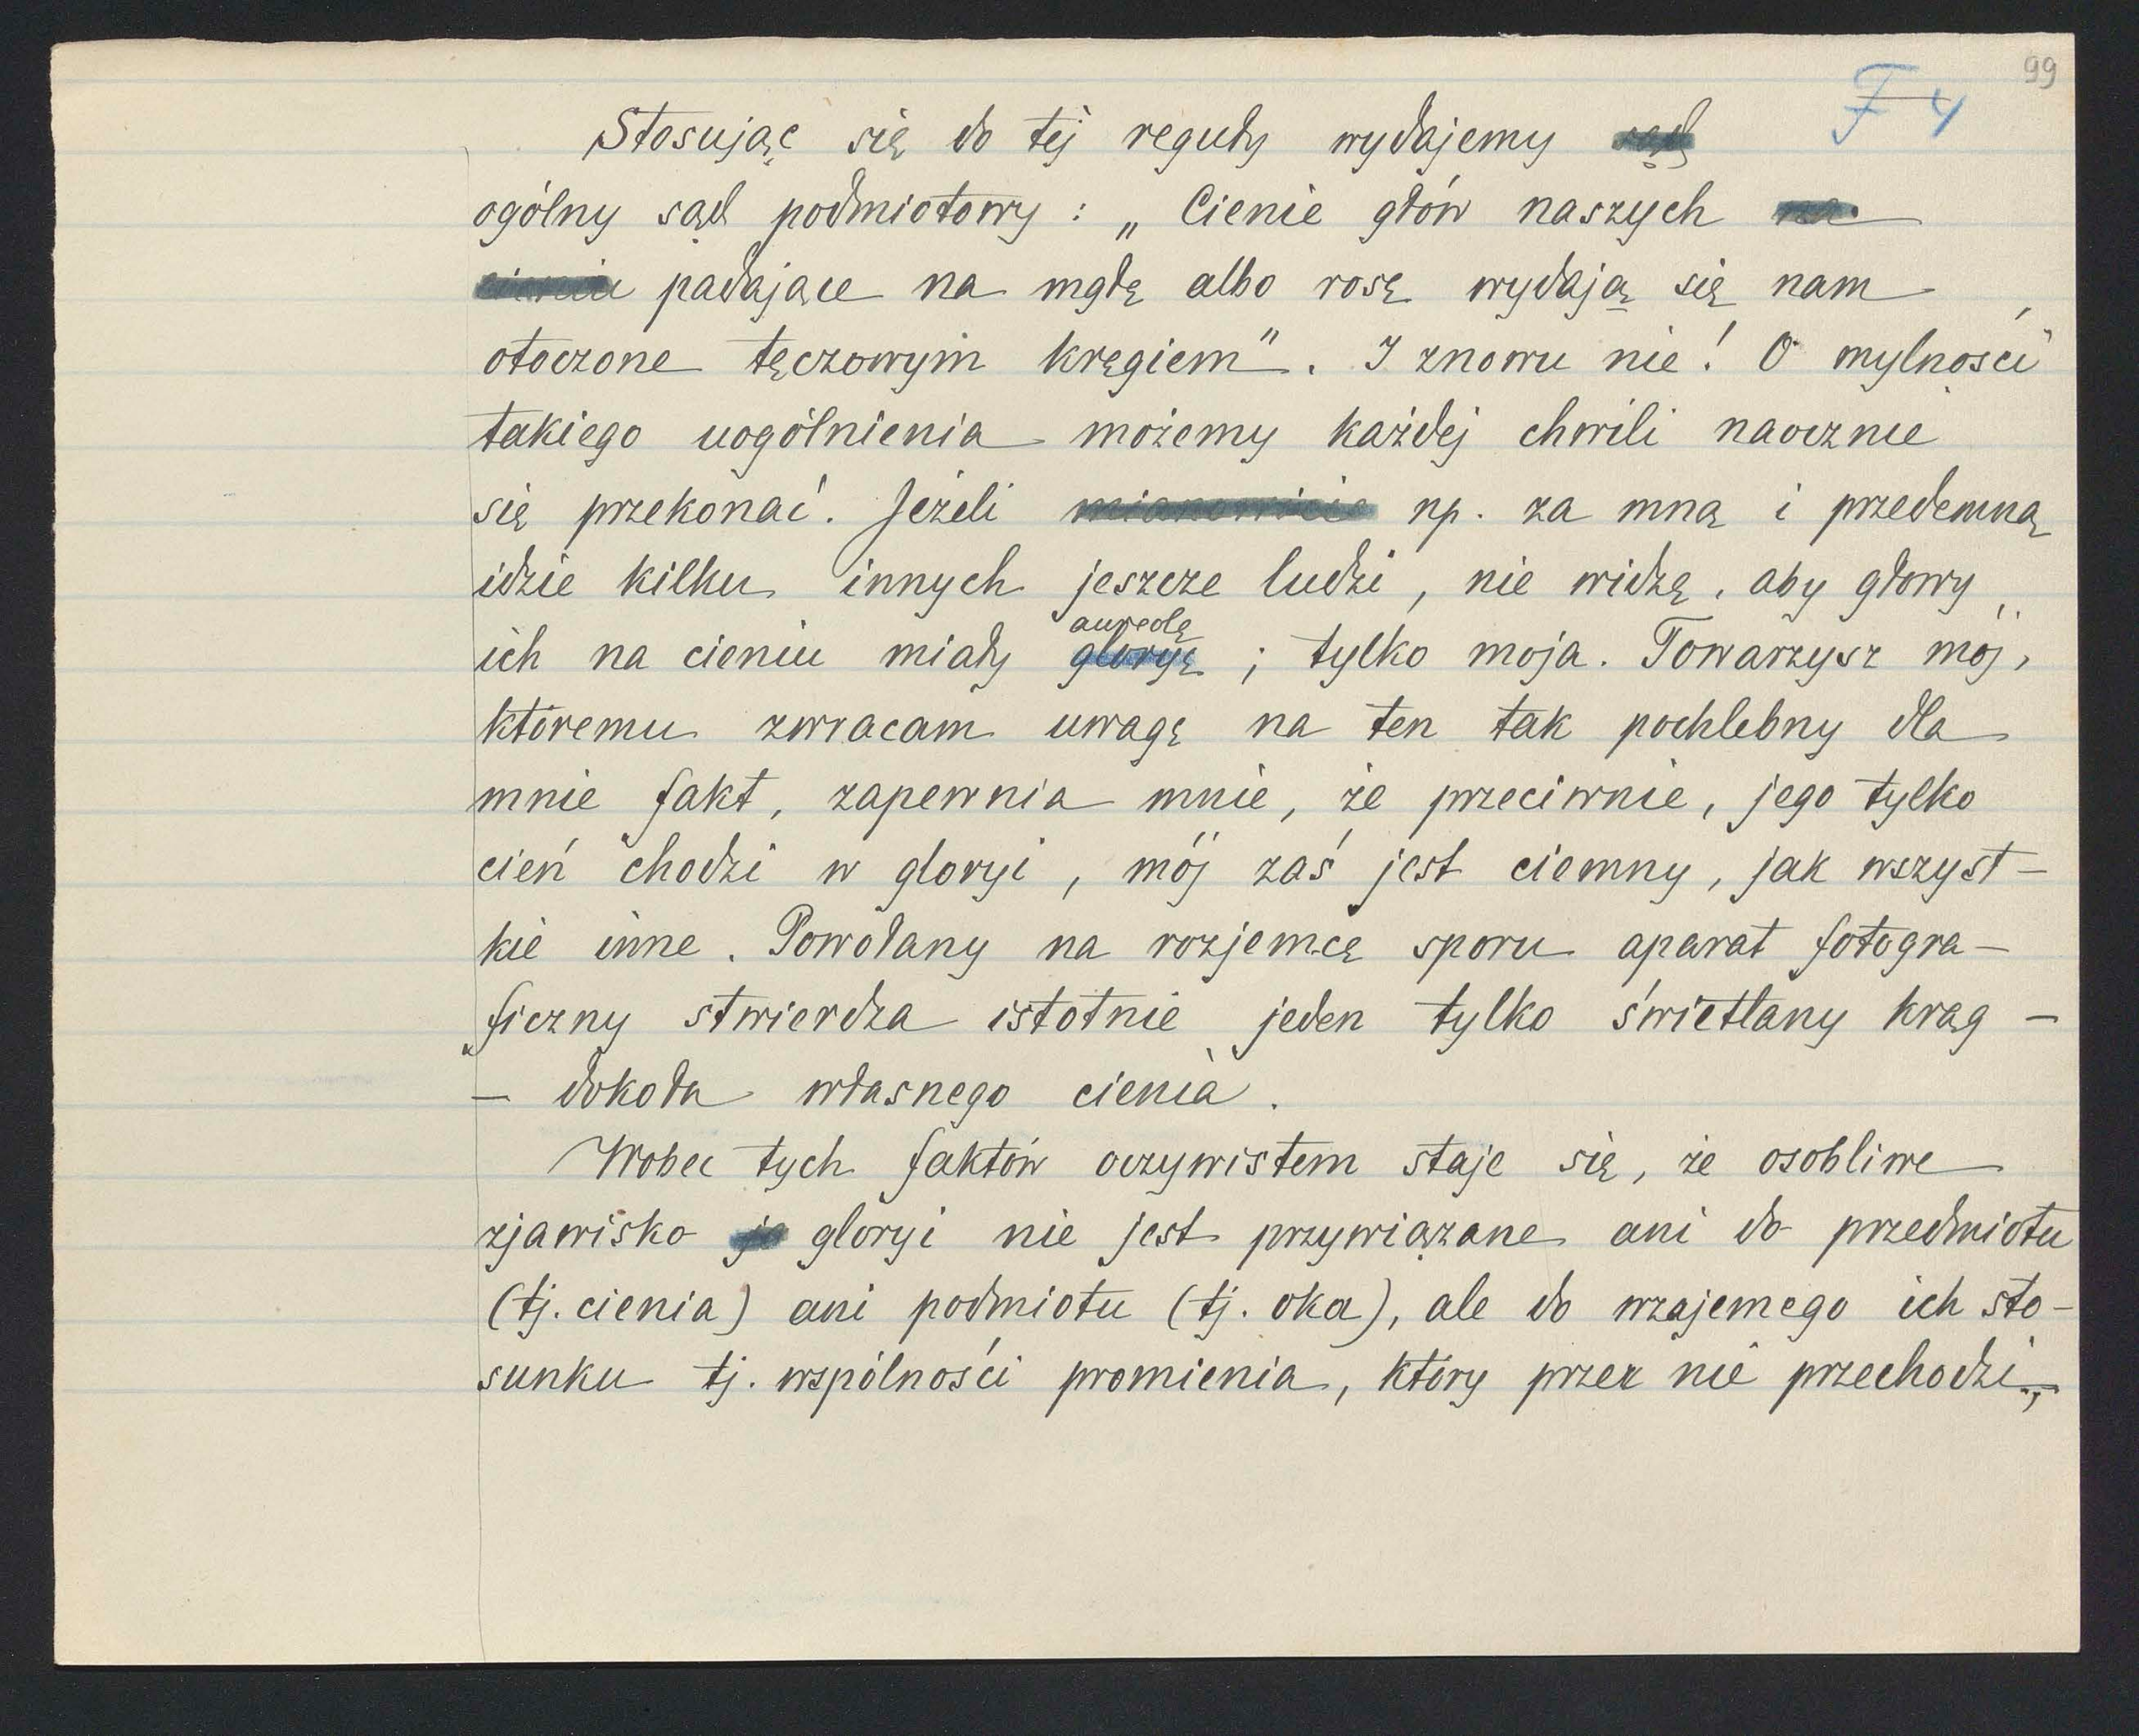 99
F 4
Stosując się do tej reguły wydajemy sąd
ogólny sąd podmiotowy : „ Cienie głów naszych na
cieniu padające na mgłę albo rosę wydają się nam
otoczone tęczowym kręgiem". I znowu nie! O mylności
takiego uogólnienia możemy każdej chwili naocznie
się przekonać. Jeżeli mianowicie np. za mną i przedemną
idzie kilku innych jeszcze ludzi, nie widzę, aby głowy
aureolę
ich na cieniu miały gloryę ; tylko moja. Towarzysz mój,
któremu zwracam uwagę na ten tak pochlebny dla
mnie fakt, zapewnia mnie, że przeciwnie, jego tylko
cień chodzi w gloryi, mój zaś jest ciemny, jak wszyst-
kie inne. Powołany na rozjemcę sporu aparat fotogra-
ficzny stwierdza istotnie jeden tylko świetlany krąg -
- dokoła własnego cienia.
Wobec tych faktów oczywistem staje się, że osobliwe
zjawisko je gloryi nie jest przywiązane ani do przedmiotu
(tj. cienia) ani podmiotu (tj. oka), ale do wzajemego ich sto-
sunku tj. wspólności promienia, który przez nie przechodzi,